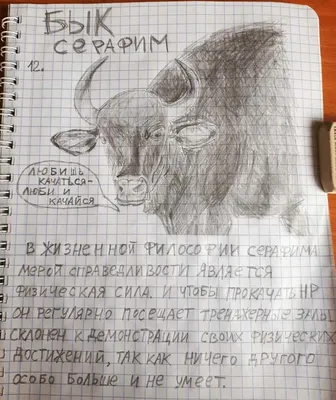 БЫК
СЕРАФИМ
12.
ЛЮБИШЬ
КАЧАТЬСЯ-
ЛЮБИ И
КАЧАЙСЯ
В ЖИЗНЕННОЙ ФИЛОСОФИИ СЕРАФИМА
МЕРОЙ СПРАВЕДЛИВОСТИ ЯВЛЯЕТСЯ
ФИЗИЧЕСКАЯ СИЛА. И ЧТОБЫ ПРОКАЧАТЬ HP
ОН РЕГУЛЯРНО ПОСЕЩАЕТ ТРЕНАЖЕРНЫЕ ЗАЛЫ,
СКЛОНЕН К ДЕМОНСТРАЦИИ СВОИХ ФИЗИЧЕСКИХ
ДОСТИЖЕНИЙ, ТАК КАК НИЧЕГО ДРУГОГО
ОСОБО БОЛЬШЕ И НЕ УМЕЕТ.